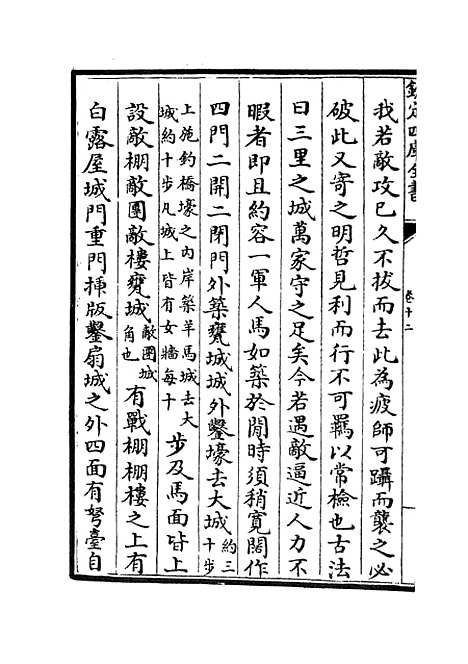 欽定四庫全書
卷十二
我若敵攻已久不拔而去此為疲師可躡而襲之必
破此又寄之明哲見利而行不可羈以常檢也古法
曰三里之城萬家守之足矣今若遇敵逼近人力不
暇者即且約容一軍人馬如築於閒時須稍寬闊作
四門二開二閉門外築甕城城外鑿壕去大城約三十步
上施釣橋壕之內岸築羊馬城去大城約十步凡城上皆有女牆每十步及馬面皆上
設敵棚敵團敵樓甕城敵團城角也有戰棚棚樓之上有
白露屋城門重門揷版鑿扇城之外四面有弩臺自